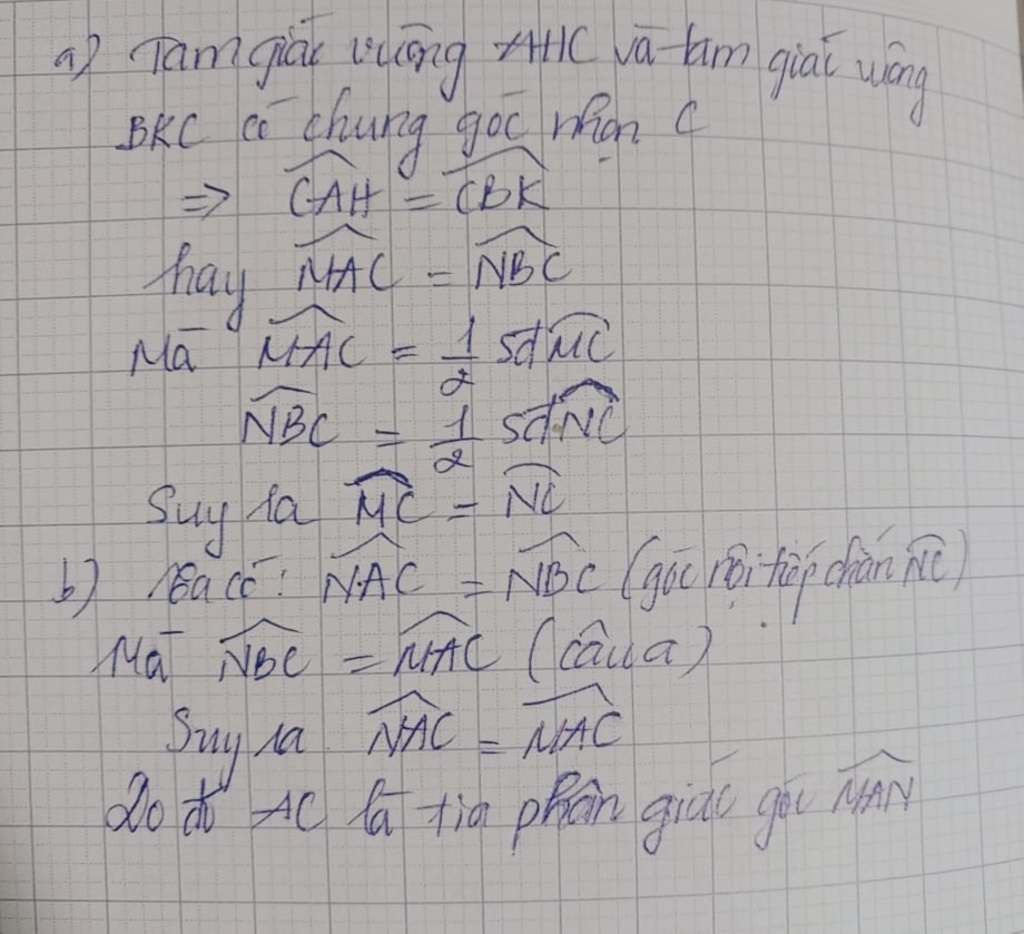 a) Tam giác vuông AHC và tam giác vuông
BKC có chung góc nhọn C
=> \widehat{CAH} = \widehat{CBK}
hay \widehat{MAC} = \widehat{NBC}
Mà \widehat{MAC} = \frac{1}{2} sđ\overset{\frown}{MC}
\widehat{NBC} = \frac{1}{2} sđ\overset{\frown}{NC}
Suy ra \overset{\frown}{MC} = \overset{\frown}{NC}
b) Ta có: \widehat{NAC} = \widehat{NBC} (góc nội tiếp chắn \overset{\frown}{NC})
Mà \widehat{NBC} = \widehat{MAC} (câu a)
Suy ra \widehat{NAC} = \widehat{MAC}
Do đó AC là tia phân giác góc \widehat{MAN}